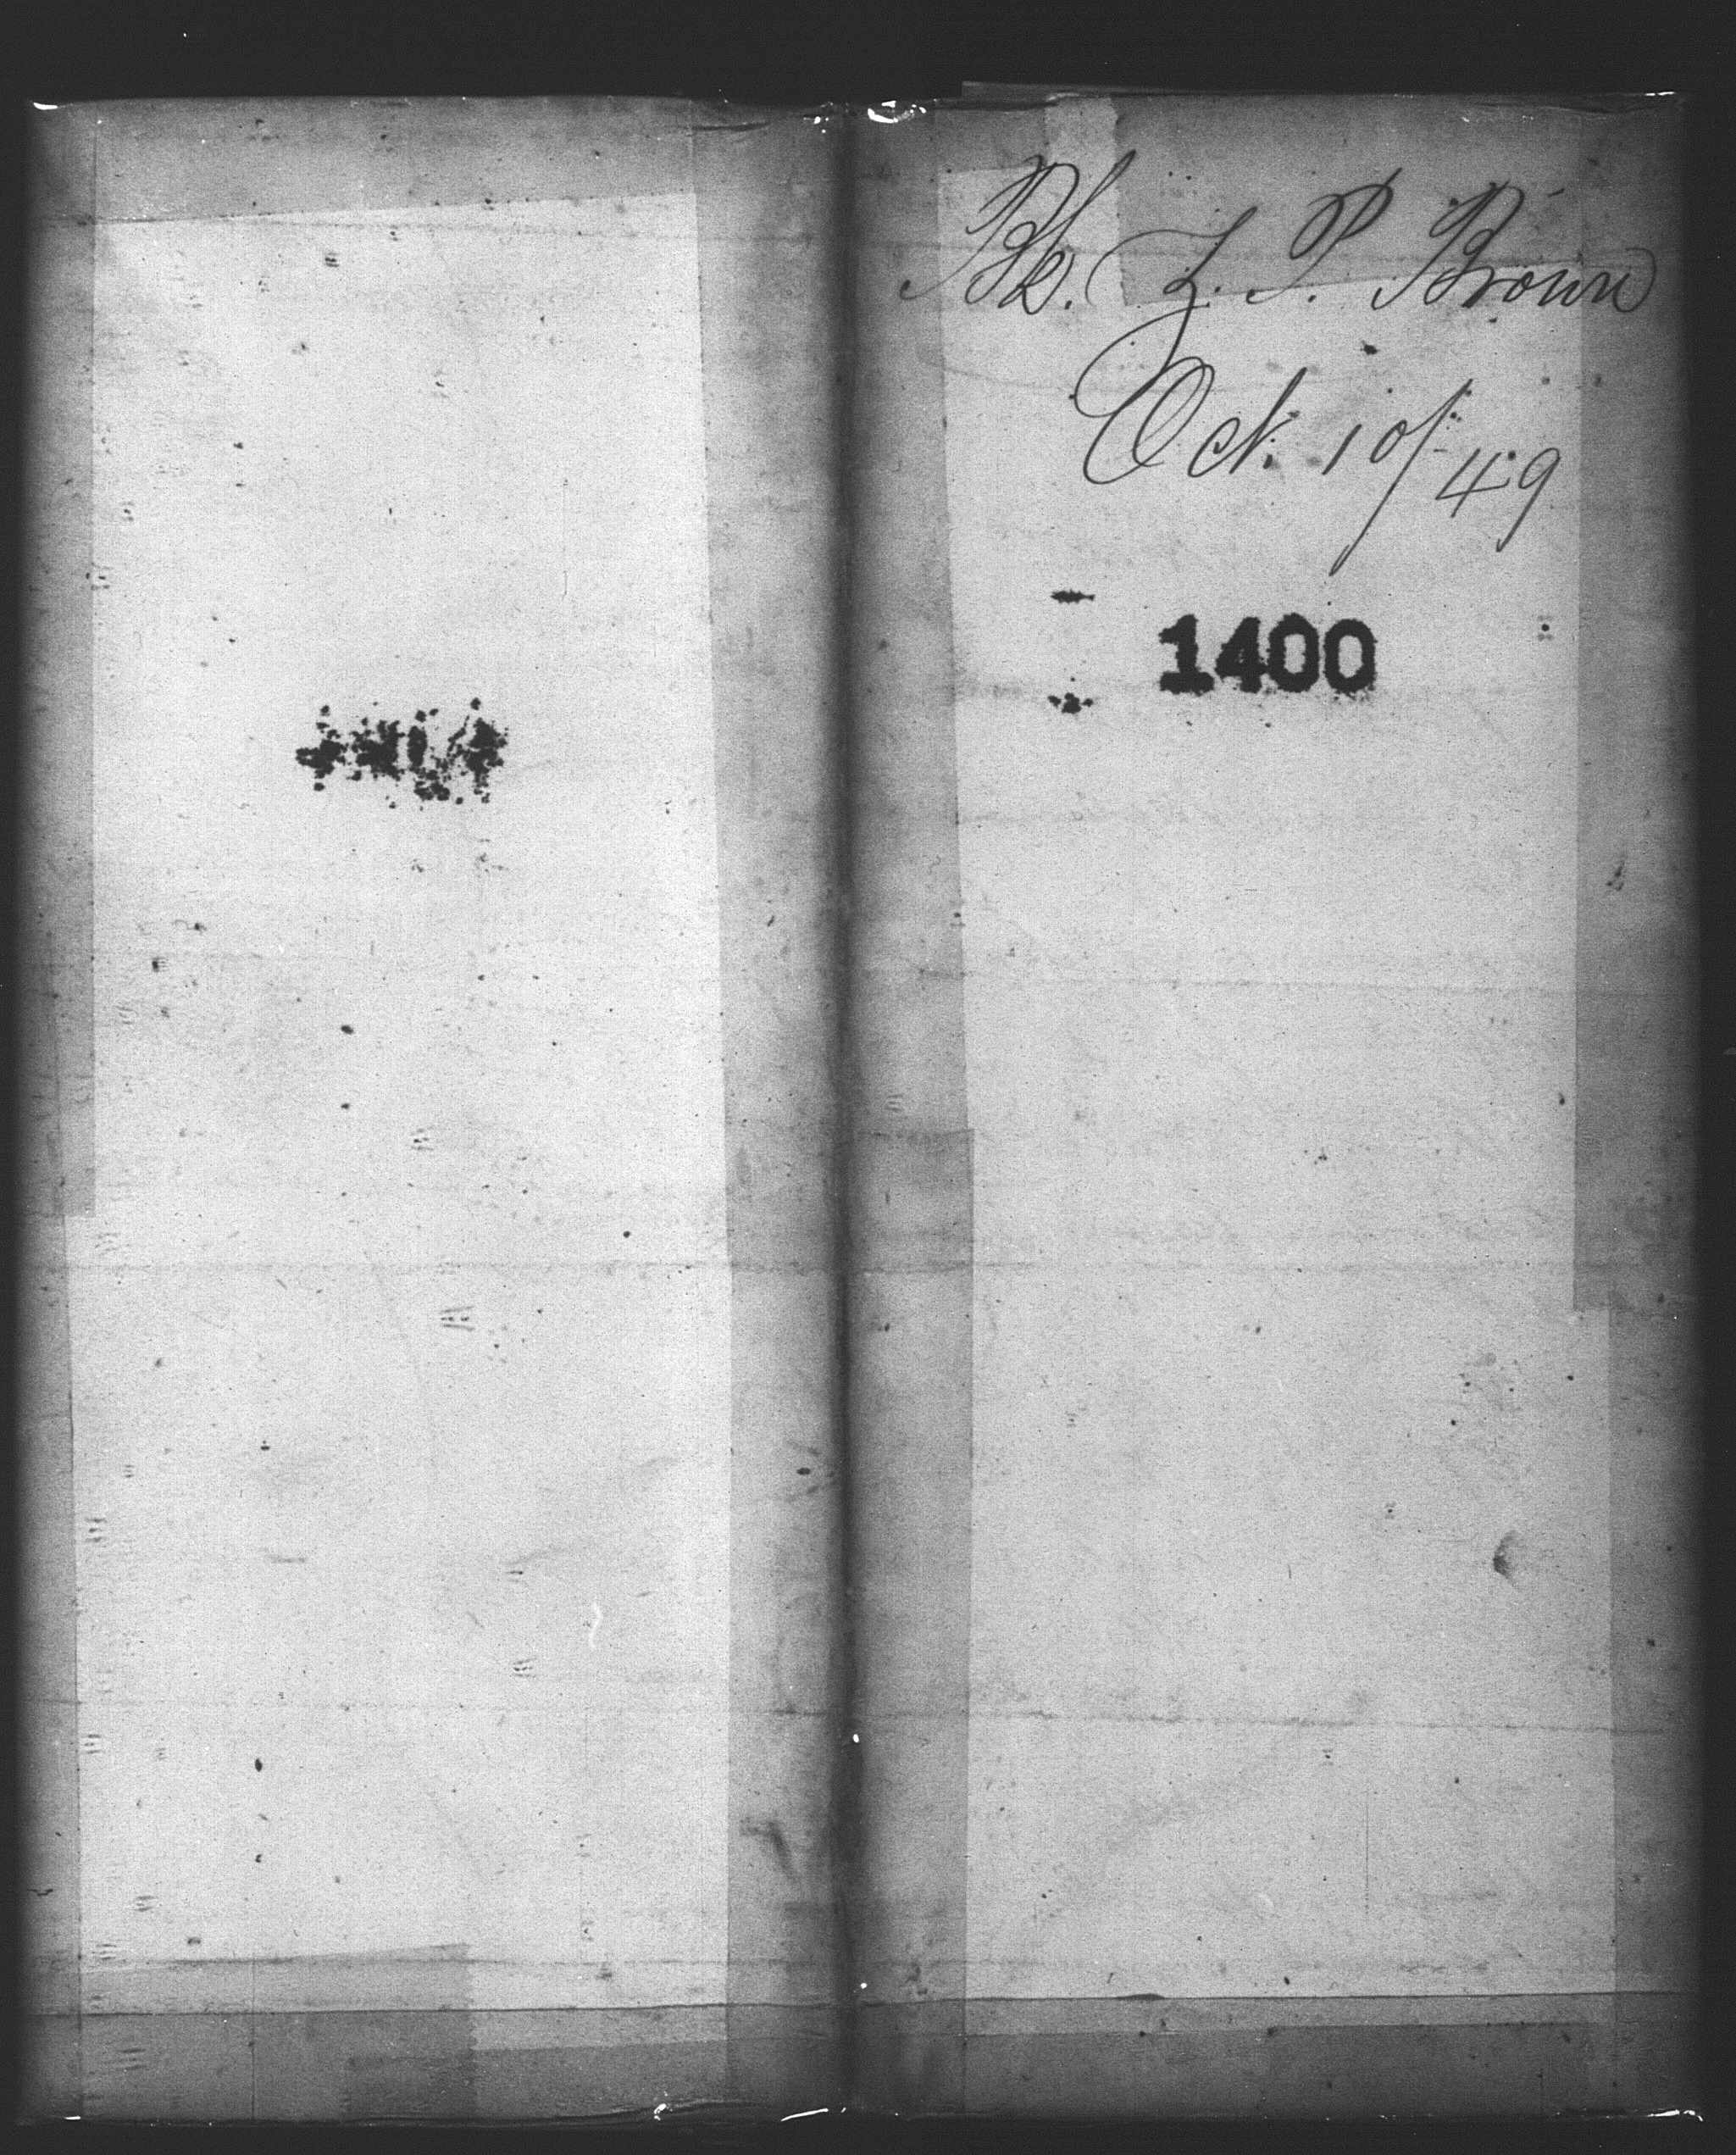 Bk. Z. P. Brown
Oct. 10/49
1400